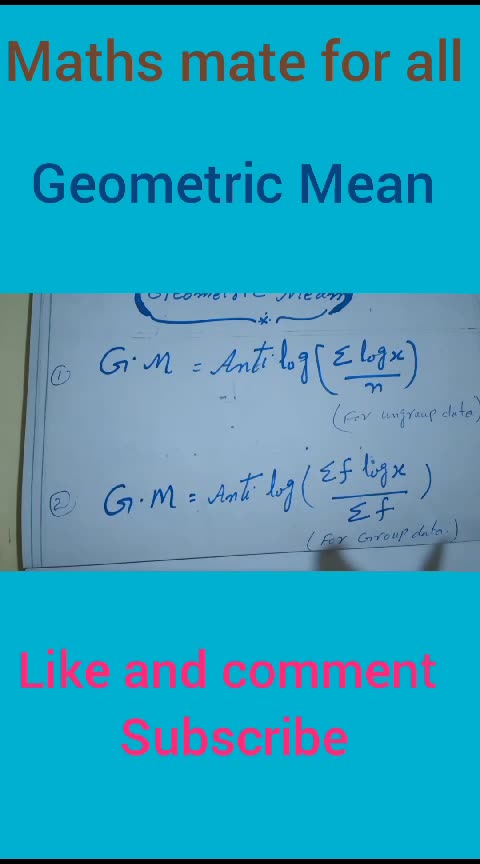 Maths mate for all
Geometric Mean
Geometric Mean
① G.M = Anti log(Σ logx / n)
(For ungroup data)
② G.M = Anti log(Σf logx / Σf)
(For Group data.)
Like and comment
Subscribe